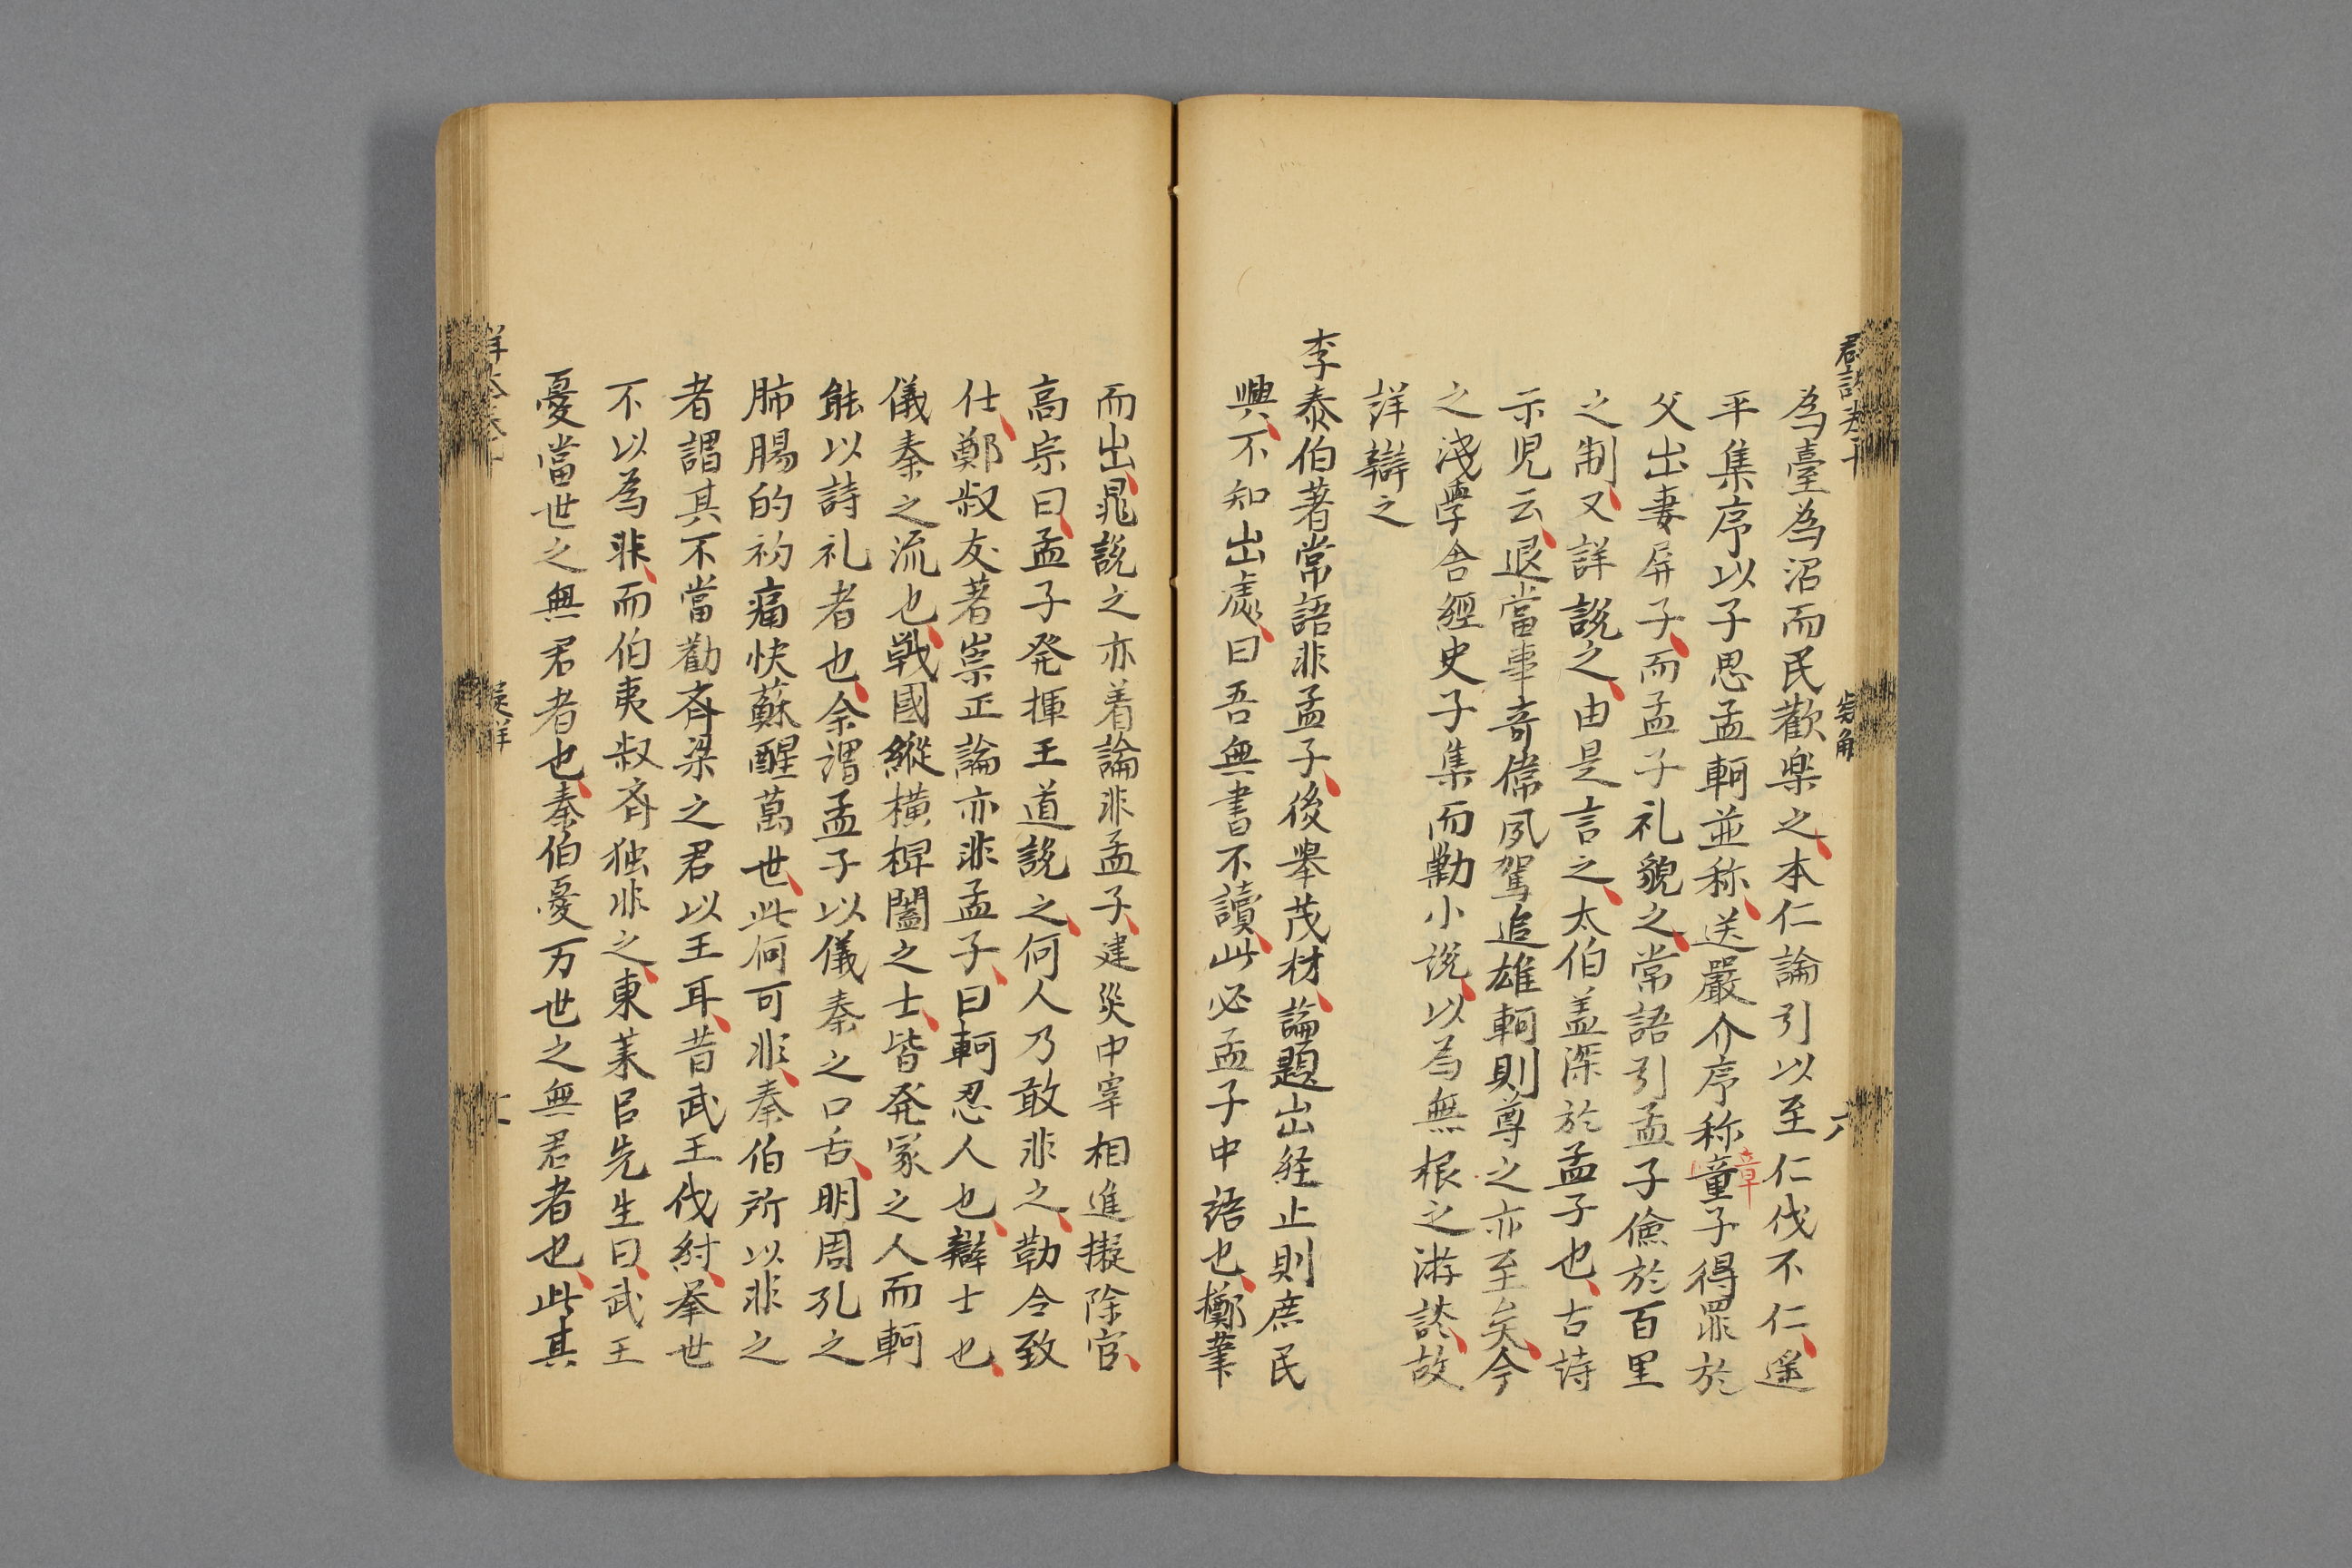 為臺為沼而民歡楽之本仁論引以至仁伐不仁遥
平集序以子思孟軻並称送嚴介序称童子得罪於
章
父出妻屏子而孟子礼貌之常語引孟子儉於百里
之制又詳説之由是言之太伯盖深於孟子也古詩
示児云退當事奇偉夙駕追雄軻則尊之亦至矣今
之淺學舎經史子集而勦小説以為無根之游談故
詳辯之
李泰伯著常語非孟子後舉茂材論題出経止則庶民
興不知出處曰吾無書不讀此必孟子中語也擲筆
而出晁説之亦着論非孟子建炎中宰相進擬除官
高宗曰孟子発揮王道説之何人乃敢非之勒令致
仕鄭叔友著崇正論亦非孟子曰軻忍人也辯士也
儀秦之流也戰國縱横捭闔之士皆発冢之人而軻
能以詩礼者也余謂孟子以儀秦之口舌明周孔之
肺腸的礿痛快蘇醒萬世此何可非泰伯所以非之
者謂其不當勸斉梁之君以王耳昔武王伐紂挙世
不以為非而伯夷叔斉独非之東莱呂先生曰武王
憂當世之無君者也泰伯憂万世之無君者也此其